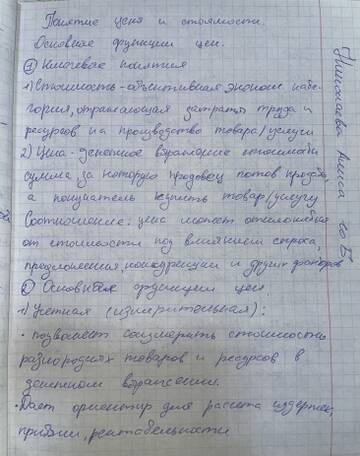 Понятие цена и стоимости.
Основные функции цен.
① Ключевые понятия
1) Стоимость - объективная эконом. кате-
гория, отражающая затраты труда и
ресурсов на производство товара/услуги
2) Цена - денежное выражение стоимости
сумма, за которую продавец готов продать,
а покупатель купить товар/услугу
Соотношение: цена может отклоняться
от стоимости под влиянием спроса,
предложения, конкуренции и других факторов
② Основные функции цен
1) Учетная (измерительная):
• позволяет соизмерить стоимость
разнородных товаров и ресурсов в
денежном выражении.
• Дает ориентир для расчета издержек,
прибыли, рентабельности
Алиса 10 Б